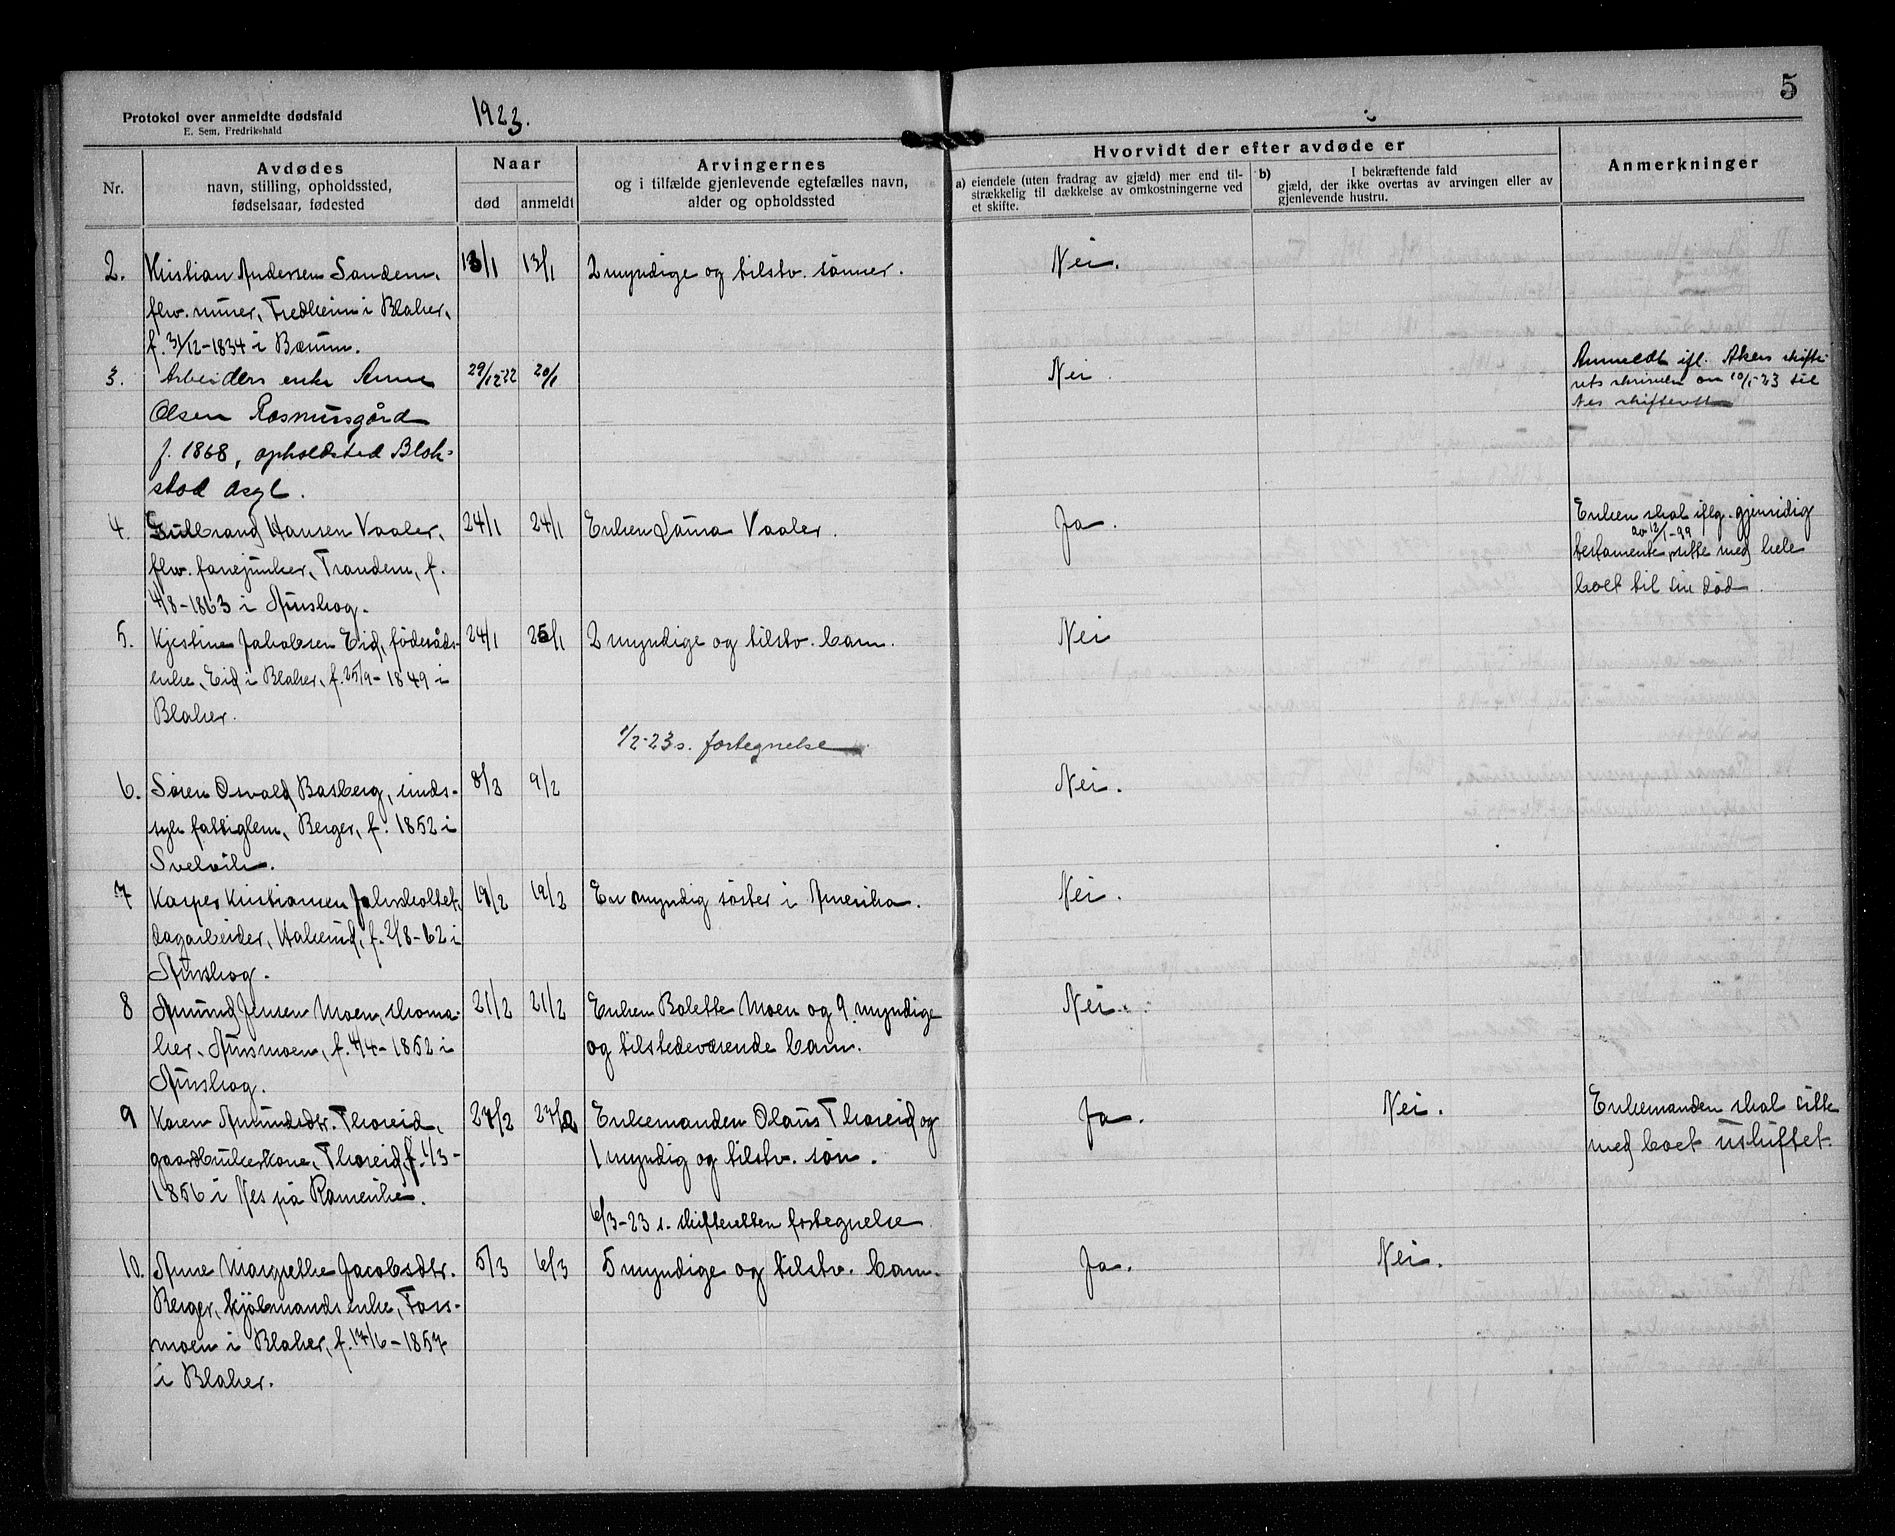 Protokol over anmeldte dødsfald
E. Sem, Fredrikshald
1923.
5
Nr.
Avdødes
navn, stilling, opholdssted,
fødselsaar, fødested
Naar
død
anmeldt
Arvingernes
og i tilfælde gjenlevende egtefælles navn,
alder og opholdssted
Hvorvidt der efter avdøde er
a) eiendele (uten fradrag av gjæld) mer end til-
strækkelig til dækkelse av omkostningerne ved
et skifte.
b) I bekræftende fald
gjæld, der ikke overtas av arvingen eller av
gjenlevende hustru.
Anmerkninger
2. Kristian Andersen Sandem, 13/1 13/1 2 myndige og tilstv. sønner. Nei.
flv. murer, Fredheim i Blaker,
f. 31/12-1834 i Bærum.
3. Arbeiders enke Anne 29/12-22 20/1 Nei. Anmeldt ifl. Akers skifte-
Olsen Rasmusgård rets skrivelse av 10/1-23 til
f. 1868, opholdsted Blak- Nes skifterett
stad Asyl.
4. Gulbrand Hansen Vaaler, 24/1 24/1 Enken Laura Vaaler. Ja. Enken skal iflg. gjensidig
flv. fanejunker, Trandem, f. testamente av 12/1-99 sitte med hele
4/8-1863 i Aurskog. boet til sin død.
5. Kjestine Jakobsen Eid, føderåds- 24/1 26/1 2 myndige og tilstv. barn. Nei
enke, Eid i Blaker, f. 25/9-1849 i
Blaker.
1/2-23 s. fortegnelse
6. Søren Osvald Basberg, sinds- 8/2 9/2 Nei.
syk fattiglem, Berger, f. 1852 i
Svelvik.
7 Kasper Kristiansen Jahrsholtet, 19/2 19/2 En myndig søster i Amerika. Nei.
dagarbeider, f. 2/8-62 i
Aurskog.
8 Amund Jensen Moen, skoma- 21/2 21/2 Enken Bolette Moen og 9 myndige Nei.
ker, Aursmoen, f. 4/4-1852 i og tilstedeværende barn.
Aurskog.
9 Karen Amundsdtr. Thoreid, 27/2 27/2 Enkemanden Olaus Thoreid og Ja. Nei. Enkemanden skal sitte
gaardbrukerkone, Thoreid, f. 1/3- 1 myndig og tilstv. søn. med boet uskiftet.
1856 i Nes på Romerike.
6/3-23 s. skifteretten fortegnelse
10. Anne Margrethe Jacobsdtr. 5/3 6/3 5 myndige og tilstv. barn. Ja. Nei.
Berger, kjøbmands enke, Foss-
moen i Blaker, f. 17/6-1857
i Blaker.